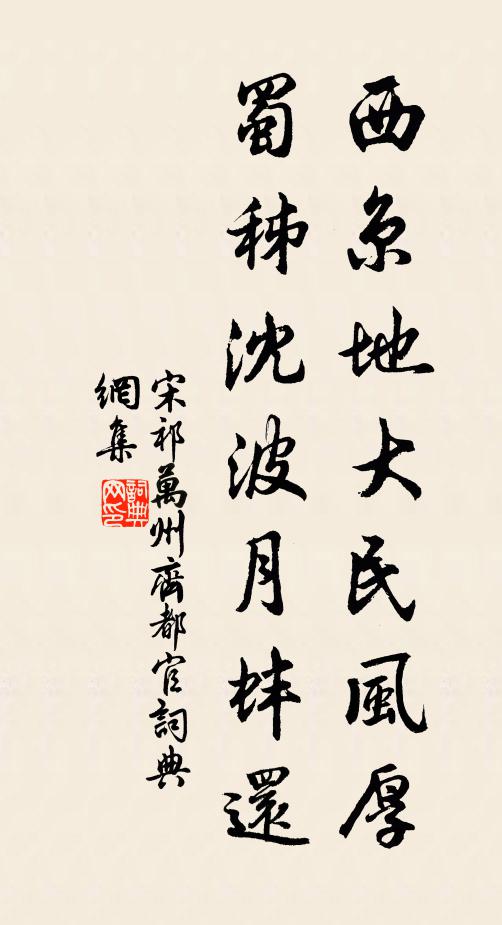 西京地大民風厚
蜀秭沈波月蚌還
宋祁萬州齊都官詞典
網集
詞典網印